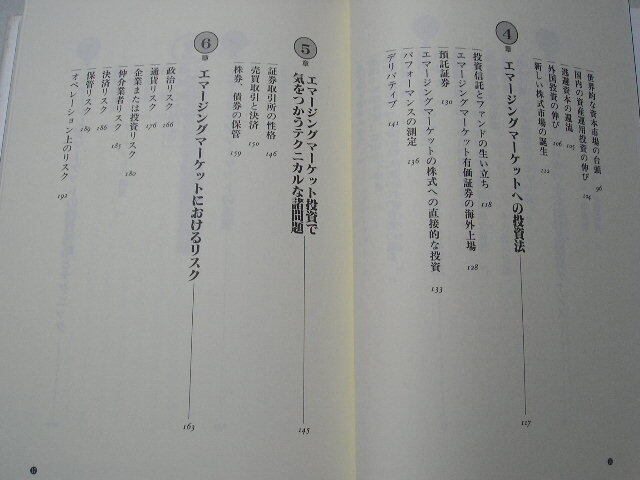 世界的な資本市場の台頭 96
国内の資産運用投資の伸び 104
逃避資本の還流 105
外国投資の伸び 106
新しい株式市場の誕生 112
4章 エマージングマーケットへの投資法 117
投資信託とファンドの生い立ち 118
エマージングマーケット有価証券の海外上場 128
預託証券 130
エマージングマーケットの株式への直接的な投資 133
パフォーマンスの測定 136
デリバティブ 141
5章 エマージングマーケット投資で
気をつかうテクニカルな諸問題 145
証券取引所の性格 146
売買取引と決済 150
株券、債券の保管 159
6章 エマージングマーケットにおけるリスク 163
政治リスク 166
通貨リスク 176
企業または投資リスク 180
仲介業者リスク 185
決済リスク 186
保管リスク 189
オペレーション上のリスク 192